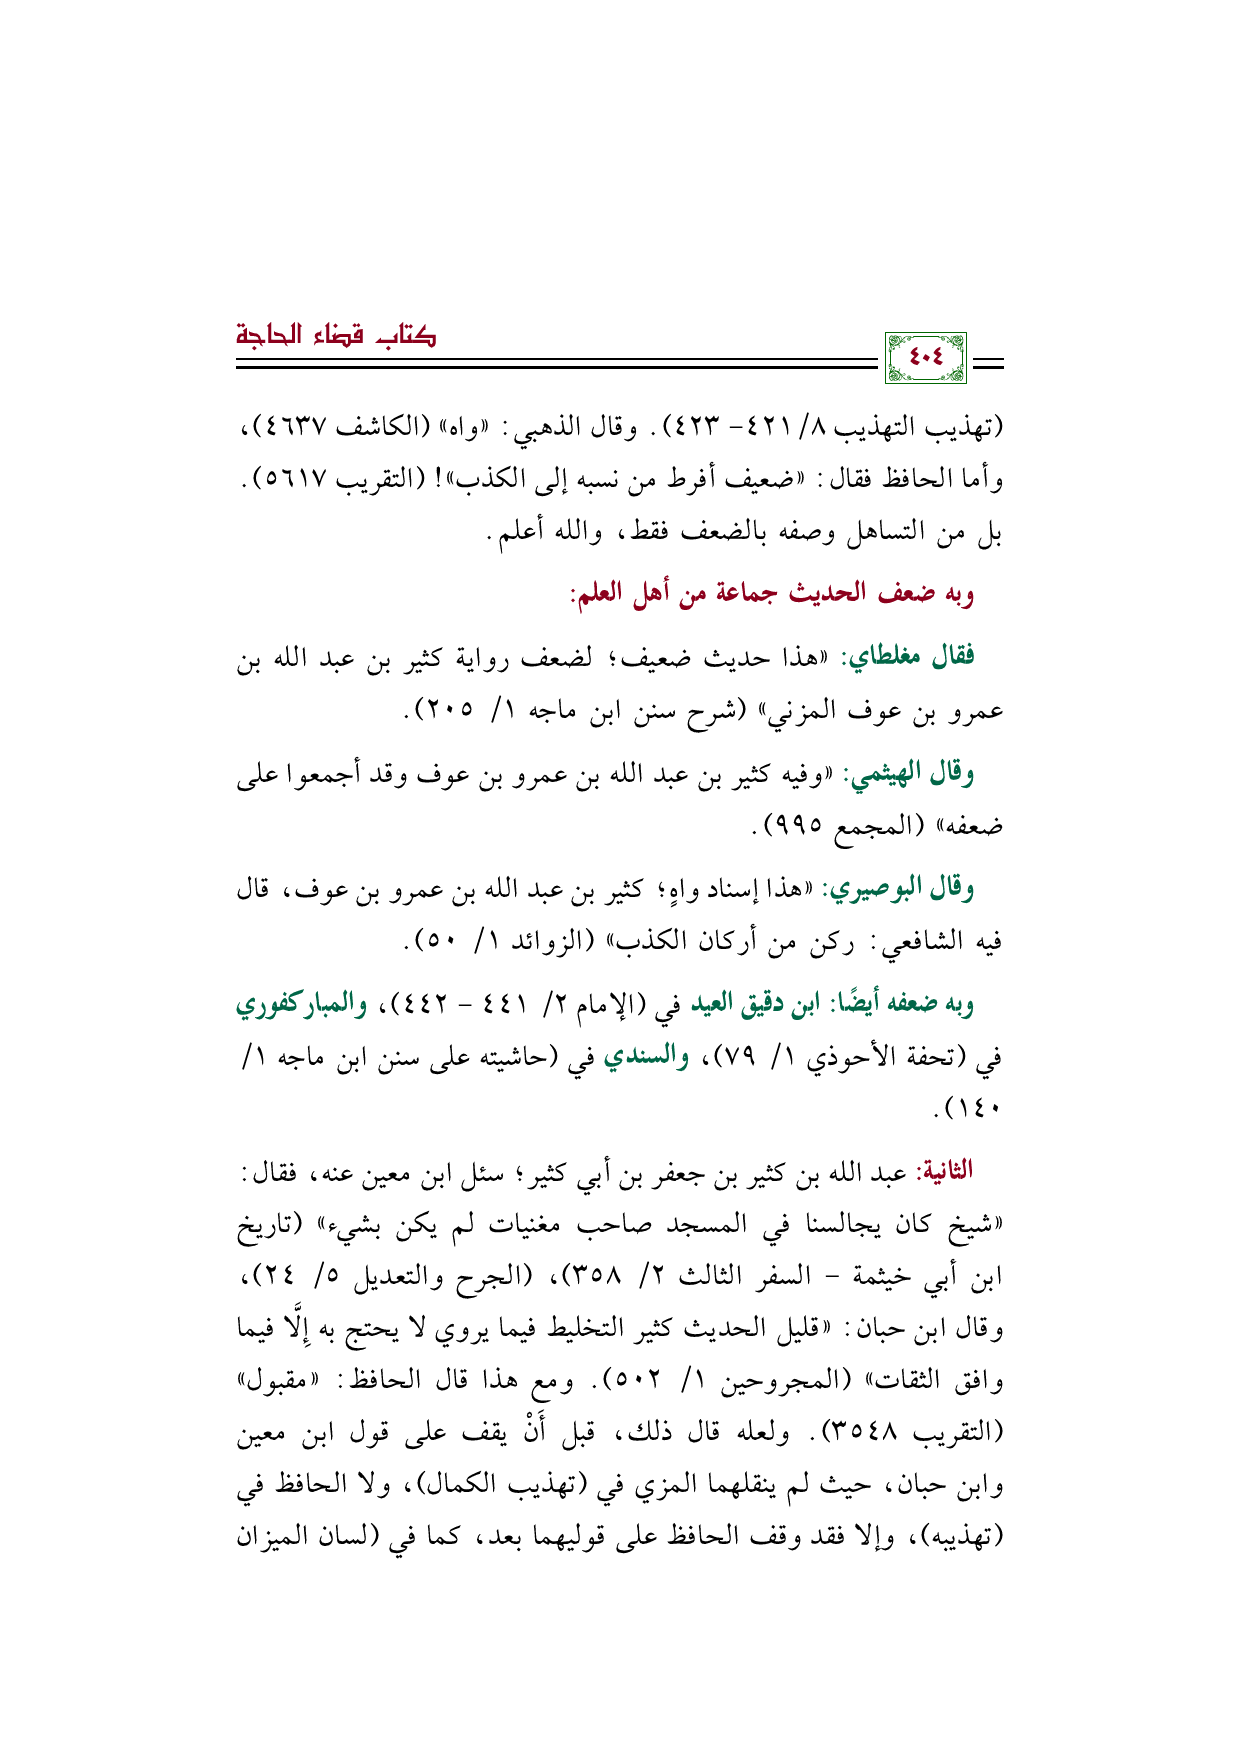 كتاب قضاء الحاجة
٤٠٤
(تهذيب التهذيب ٨/ ٤٢١- ٤٢٣). وقال الذهبي: «واه» (الكاشف ٤٦٣٧)،
وأما الحافظ فقال: «ضعيف أفرط من نسبه إلى الكذب»! (التقريب ٥٦١٧).
بل من التساهل وصفه بالضعف فقط، والله أعلم.
وبه ضعف الحديث جماعة من أهل العلم:
فقال مغلطاي: «هذا حديث ضعيف؛ لضعف رواية كثير بن عبد الله بن
عمرو بن عوف المزني» (شرح سنن ابن ماجه ١/ ٢٠٥).
وقال الهيثمي: «وفيه كثير بن عبد الله بن عمرو بن عوف وقد أجمعوا على
ضعفه» (المجمع ٩٩٥).
وقال البوصيري: «هذا إسناد واهٍ؛ كثير بن عبد الله بن عمرو بن عوف، قال
فيه الشافعي: ركن من أركان الكذب» (الزوائد ١/ ٥٠).
وبه ضعفه أيضًا: ابن دقيق العيد في (الإمام ٢/ ٤٤١ - ٤٤٢)، والمباركفوري
في (تحفة الأحوذي ١/ ٧٩)، والسندي في (حاشيته على سنن ابن ماجه ١/
١٤٠).
الثانية: عبد الله بن كثير بن جعفر بن أبي كثير؛ سئل ابن معين عنه، فقال:
«شيخ كان يجالسنا في المسجد صاحب مغنيات لم يكن بشيء» (تاريخ
ابن أبي خيثمة - السفر الثالث ٢/ ٣٥٨)، (الجرح والتعديل ٥/ ٢٤)،
وقال ابن حبان: «قليل الحديث كثير التخليط فيما يروي لا يحتج به إِلَّا فيما
وافق الثقات» (المجروحين ١/ ٥٠٢). ومع هذا قال الحافظ: «مقبول»
(التقريب ٣٥٤٨). ولعله قال ذلك، قبل أَنْ يقف على قول ابن معين
وابن حبان، حيث لم ينقلهما المزي في (تهذيب الكمال)، ولا الحافظ في
(تهذيبه)، وإلا فقد وقف الحافظ على قوليهما بعد، كما في (لسان الميزان